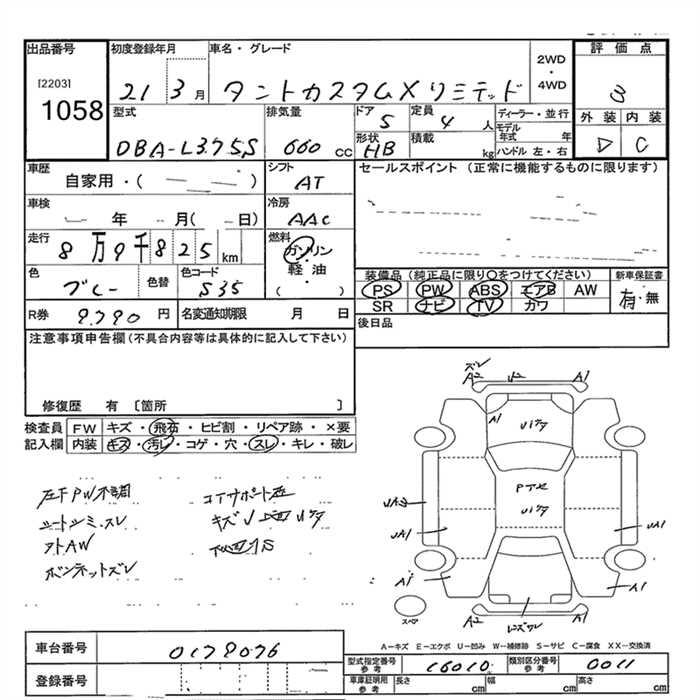 出品番号
[2203]
1058
初度登録年月
21 3月
車名・グレード
タントカスタムXリミテッド
2WD
・
4WD
評価点
3
外装 内装
C
型式
DBA-L375S
排気量
660 CC
ドア 5
定員 4 人
ディーラー・並行
モデル年式 年
形状 HB
積載 kg
ハンドル 左・右
車歴
自家用・( )
シフト
AT
セールスポイント (正常に機能するものに限ります)
車検
年 月( 日)
冷房
AAC
走行
8万9千825km
燃料
ガソリン・
軽油
( )
色
ブルー
色替
色コード
S35
装備品 (純正品に限り○をつけてください)
PS PW ABS エアB AW
SR ナビ TV カワ
新車保証書
有・無
R券 9,790円
名変通知期限 月 日
後日品
注意事項申告欄(不具合内容等は具体的に記入して下さい)
修復歴 有 〔箇所 〕
検査員 FW キズ・飛石・ヒビ割・リペア跡・×要
記入欄 内装 キズ・汚レ・コゲ・穴・スレ・キレ・破レ
左F PW不調
シートシミ・スレ
AW
ボンネットズレ
ズレ
A2
A1
A1
A1
A1
A2
A1
スペア
A－キズ E－エクボ U－凹み W－補修跡 S－サビ C－腐食 XX－交換済
車台番号
0179076
登録番号
型式指定番号
参考
16010
類別区分番号
参考
0011
車庫証明用
参考
長さ cm
幅 cm
高さ cm